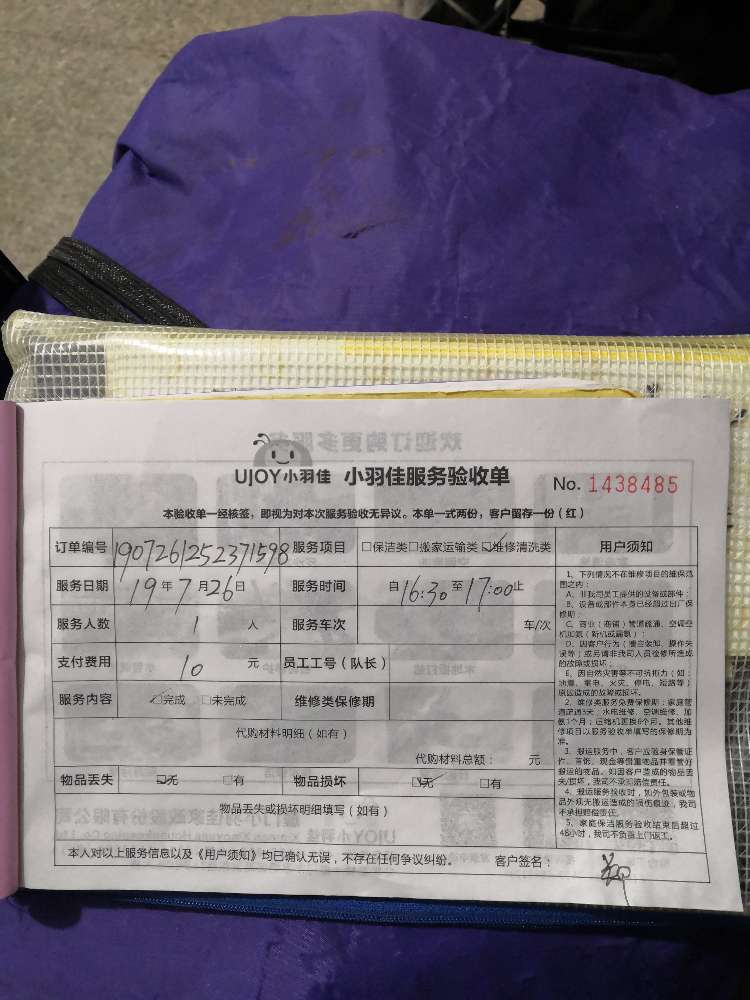 UJOY小羽佳 小羽佳服务验收单 No. 1438485
本验收单一经核签，即视为对本次服务验收无异议。本单一式两份，客户留存一份（红）
订单编号 1907261252371598 服务项目 □保洁类 □搬家运输类 ☑维修清洗类 用户须知
服务日期 19 年 7 月 26 日 服务时间 自 16:30 至 17:00 止
服务人数 1 人 服务车次 车/次
支付费用 10 元 员工工号（队长）
服务内容 ☑完成 □未完成 维修类保修期
代购材料明细（如有）
代购材料总额： 元
物品丢失 ☑无 □有 物品损坏 ☑无 □有
物品丢失或损坏明细填写（如有）
本人对以上服务信息以及《用户须知》均已确认无误，不存在任何争议纠纷。 客户签名：
1、下列情况不在维修项目的维保范
围之内：
A、非我司员工提供的设备或部件；
B、设备或部件本身已经超过出厂保
修期；
C、商业（商铺）管道疏通、空调空
机加氨（新机或漏氨）；
D、因客户行为（擅自装卸、操作失
误等）或另请非我司人员检修所造成
的故障或损坏；
E、因自然灾害等不可抗拒力（如：
地震、雷电、火灾、停电、短路等）
原因造成的故障或损坏。
2、维修类服务免费保修期：家庭管
道疏通3天；水电维修、空调维修、加
氨1个月；压缩机更换6个月。其他维
修项目以服务验收单填写的保修期为
准。
3、搬运服务中，客户应随身保管证
件、首饰、现金等贵重物品并看管好
搬运的物品。如因客户造成的物品丢
失/损坏，我司不承担赔偿责任。
4、搬运服务验收时，如外包装或物
品外观无搬运造成的损伤痕迹，我司
不承担赔偿责任。
5、家庭保洁服务验收结束后超过
48小时，我司不负责上门返工。